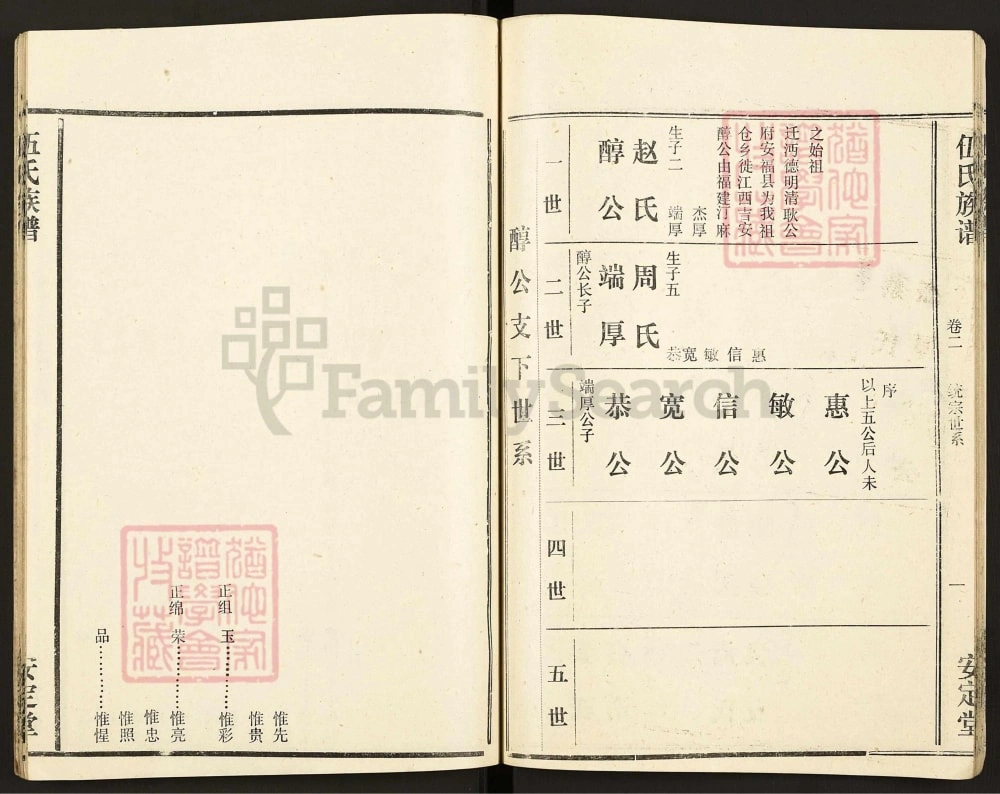 伍氏族谱
卷二
统宗世系
一
安定堂
醇公支下世系
一世
醇公
赵氏
生子二
端厚
杰厚
醇公由福建汀麻
仓乡徙江西吉安
府安福县为我祖
迁沔德明清耿公
之始祖
二世
醇公长子
端厚
周氏
生子五
恭 宽 敏 信 惠
三世
端厚公子
恭公
宽公
信公
敏公
惠公
以上五公后人未
序
四世
五世
伍氏族谱
安定堂
惟先
惟贵
正组 玉…………惟彩
正绵 荣…………惟亮
惟忠
惟照
品…………惟惺
FamilySearch